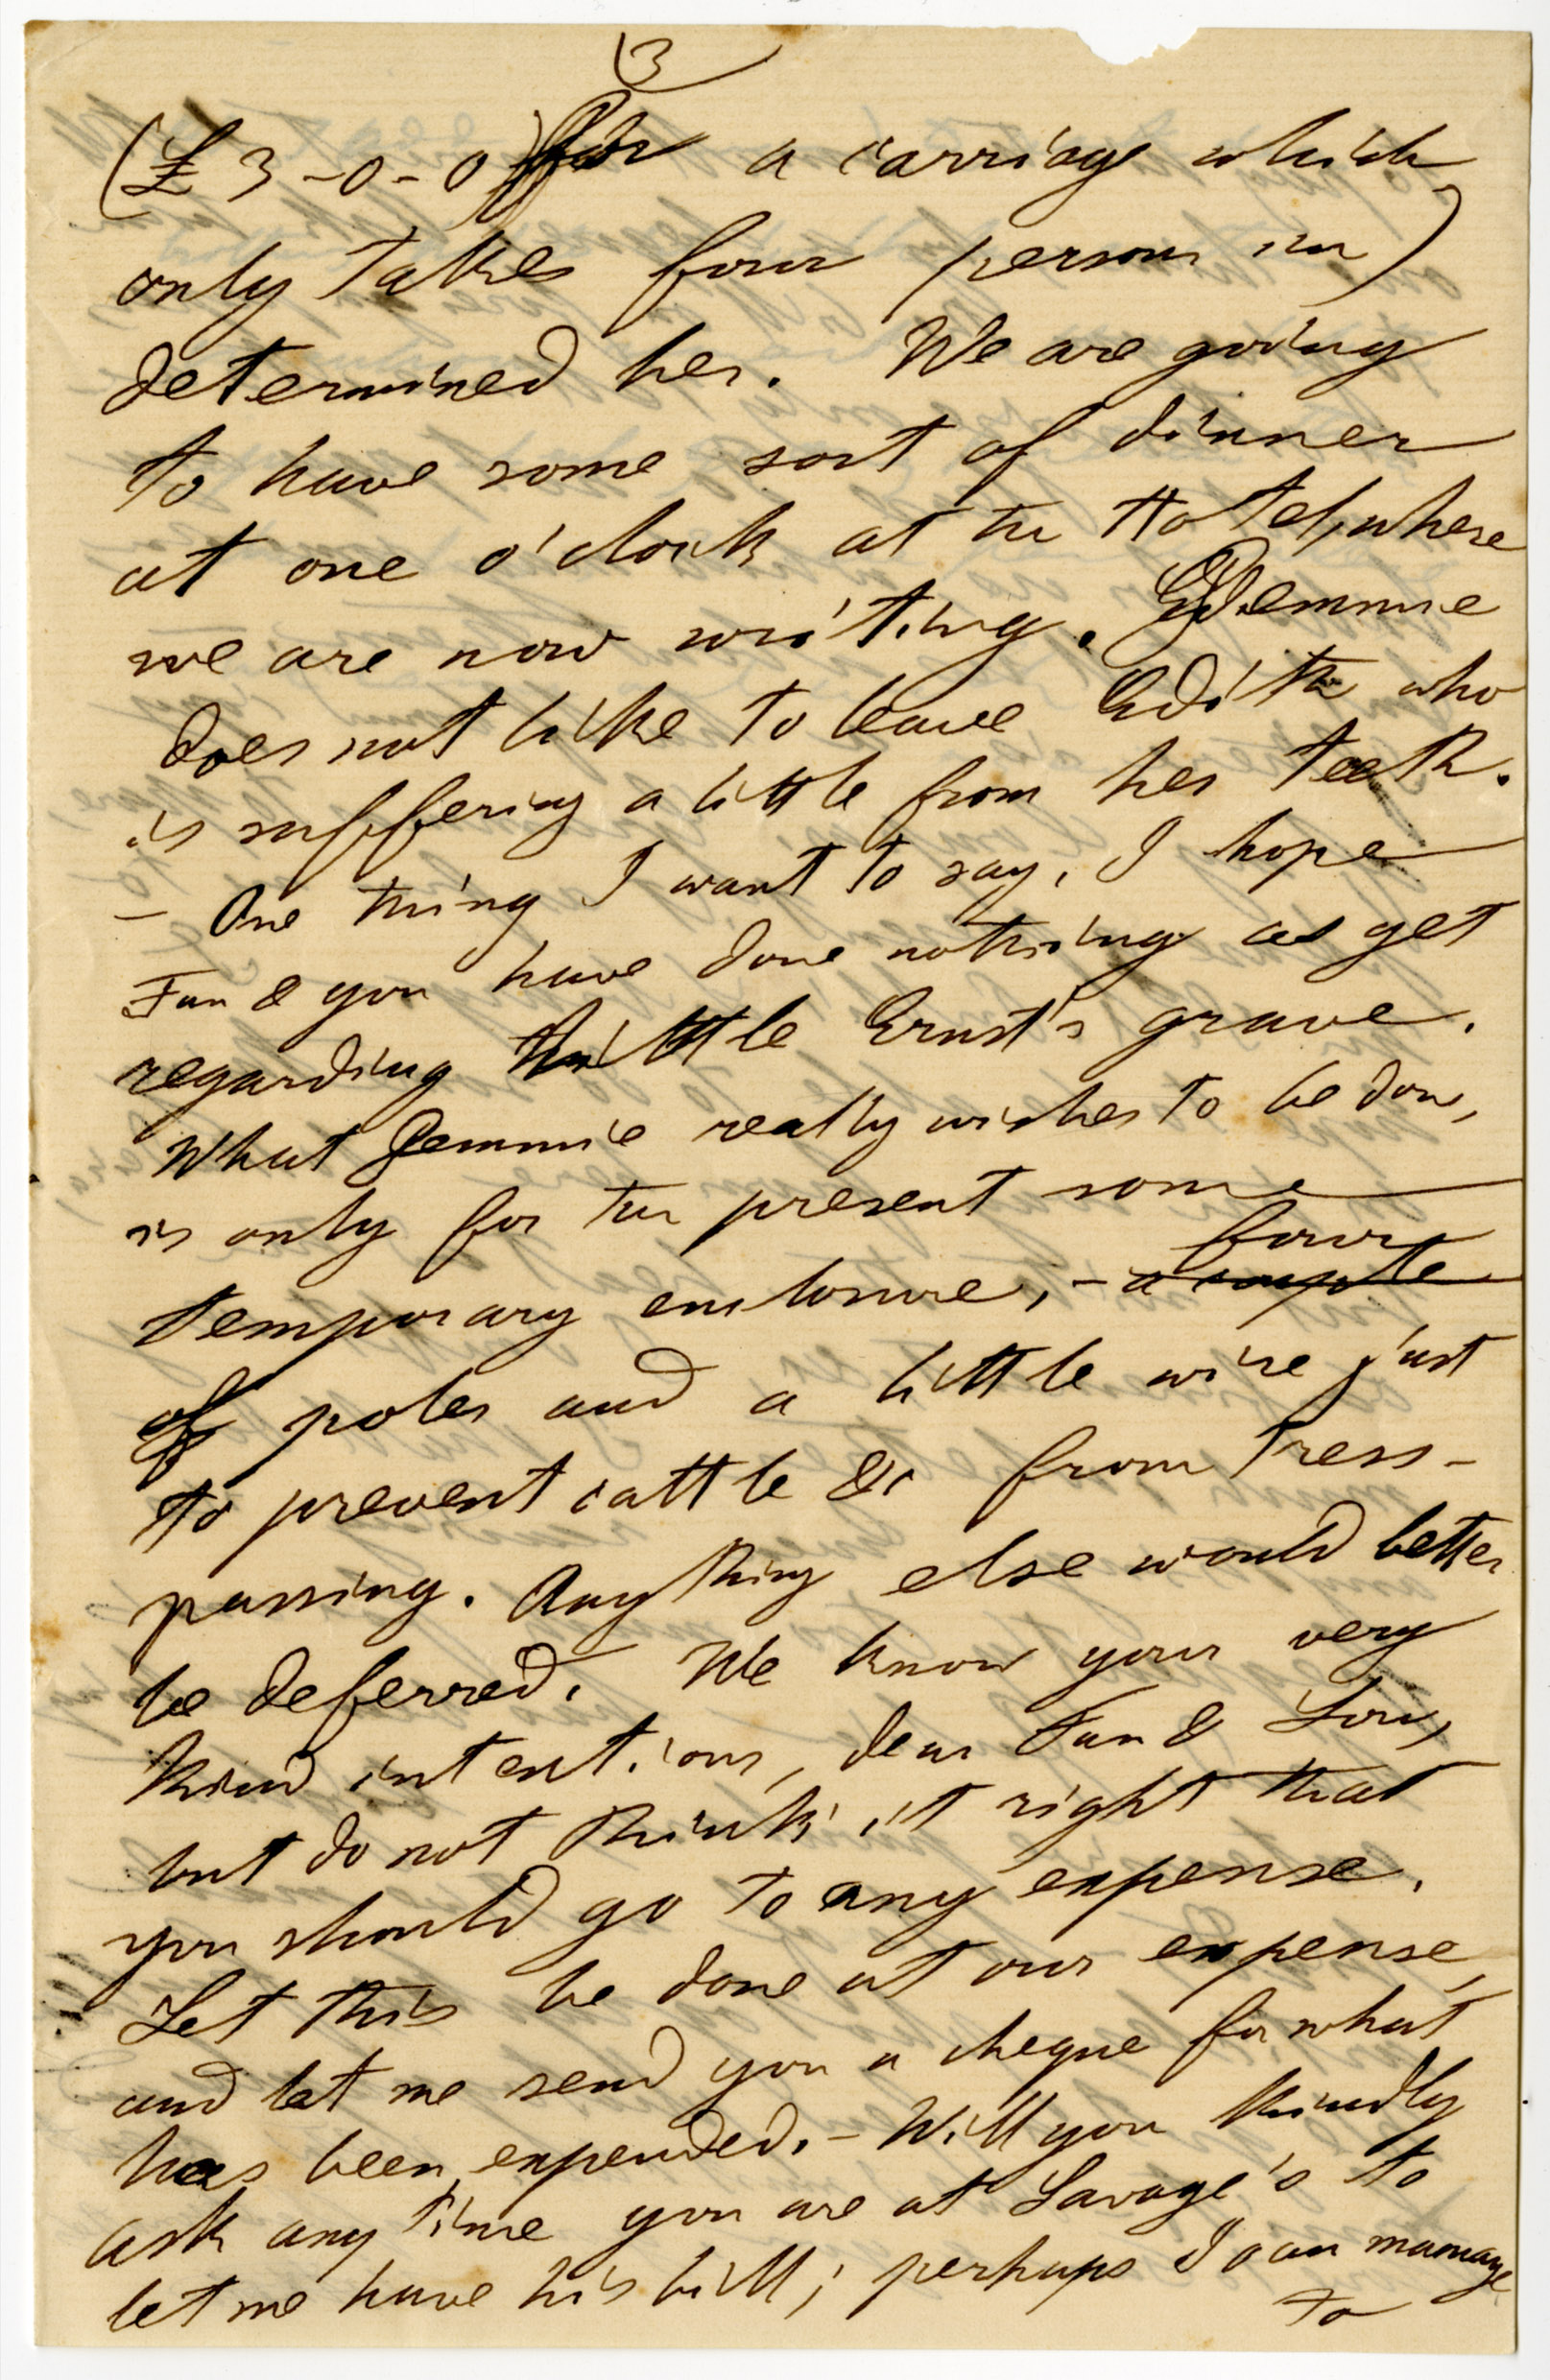 (3
(£3-0-0 for a carriage which
only takes four persons in)
determined her. We are going
to have some sort of dinner
at one o'clock at the Hotel, where
we are now writing. Jemmie
does not like to leave Edith who
is suffering a little from her teeth.
– One thing I want to say, I hope
Fan & you have done nothing as yet
regarding little Ernst's grave.
What Jemmie really wishes to be done,
is only for the present some
temporary enclosure, – a couple
four
of poles and a little wire just
to prevent cattle &c from tress-
passing. Anything else would better
be deferred. We know your very
kind intentions, dear Fan & Lou,
but do not think it right that
you should go to any expense.
Let this be done at our expense,
and let me send you a cheque for what
has been expended. – Will you kindly
ask any time you are at Savage's to
let me have his bill; perhaps I can manage
to